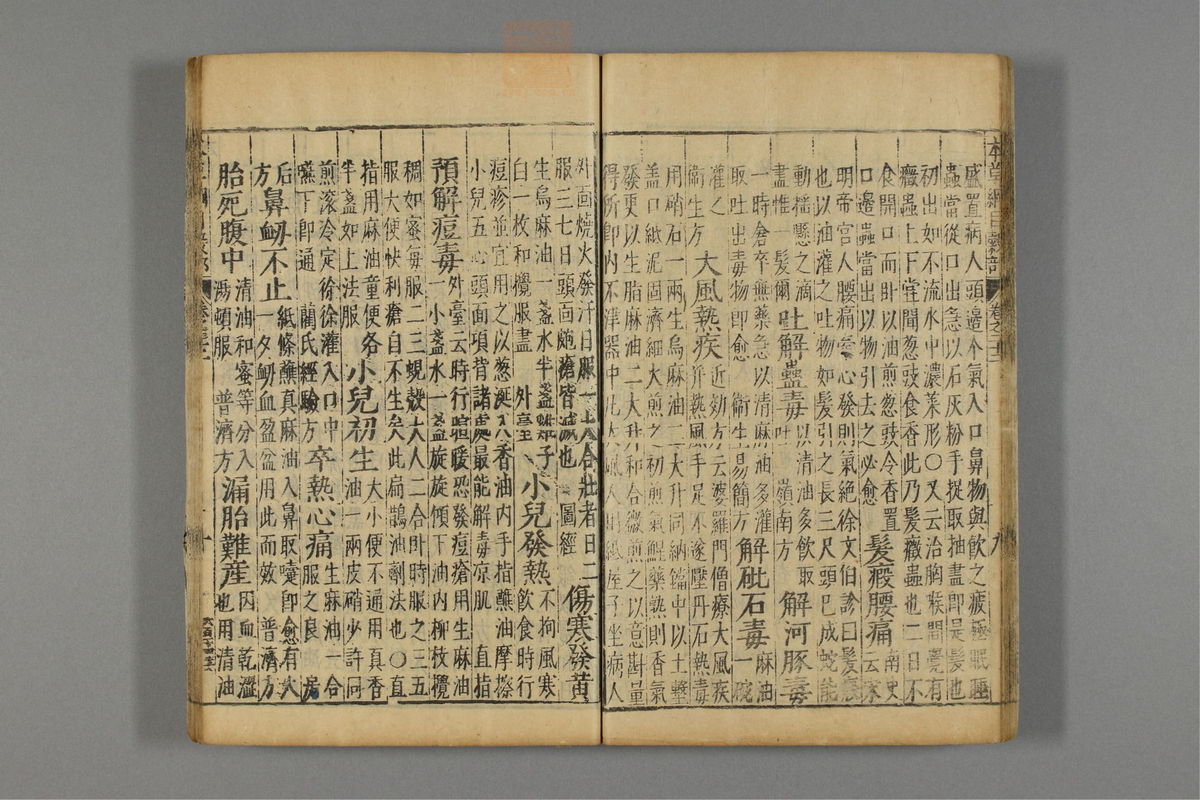 本草綱目穀部 卷之二十二 九
盛置病人頭邊令氣入口鼻物與飲之疲極眠睡
蟲當從口出急以石灰粉手捉取抽盡即是髮也
初出如不流水中濃菜形〇又云治胸喉間覺有
癥蟲上下嘗聞葱豉食香此乃髮癥蟲也二日不
食開口而臥以油煎葱豉令香置
口邊蟲當出以物引去之必愈
髮瘕腰痛
南史
云宋
明帝宮人腰痛牽心發則氣絕徐文伯診曰髮瘕
也以油灌之吐物如髮引之長三尺頭已成蛇能
動搖懸之滴
盡惟一髮爾
吐解蠱毒
以清油多飲取
吐 嶺南方
解河豚毒
一時倉卒無藥急以清麻油多灌
取吐出毒物即愈 衛生易簡方
解砒石毒
麻油
一碗
灌之
衛生方
大風熱疾
近効方云婆羅門僧療大風疾
并熱風手足不遂壓丹石熱毒
用硝石一兩生烏麻油二大升同納鐺中以土墼
蓋口紙泥固濟細火煎之初煎氣鯹藥熟則香氣
發更以生脂麻油二大升和合微煎之以意斟量
得所即內不津器中凡大風人用紙屋子坐病人
外面燒火發汗日服一大合壯者日二
服三七日頭面皰瘡皆滅也 圖經
傷寒發黃
生烏麻油一盞水半盞雞子
白一枚和攪服盡 外臺
小兒發熱
不拘風寒
飲食時行
痘疹並宜用之以葱涎入香油內手指蘸油摩擦
小兒五心頭面項背諸處最能解毒凉肌 直指
預解痘毒
外臺云時行暄暖恐發痘瘡用生麻油
一小盞水一盞旋旋傾下油內柳枝攪
稠如蜜每服二三蜆殼大人二合臥時服之三五
服大便快利瘡自不生矣此扁鵲油劑法也〇直
指用麻油童便各
半盞如上法服
小兒初生
大小便不通用真香
油一兩皮硝少許同
煎滾冷定徐徐灌入口中
嚥下即通 藺氏經驗方
卒熱心痛
生麻油一合
服之良
后
方
鼻衄不止
紙條蘸真麻油入鼻取嚏即愈有人
一夕衄血盈盆用此而效 普濟方
胎死腹中
清油和蜜等分入
湯頓服 普濟方
漏胎難産
因血乾澀
也用清油